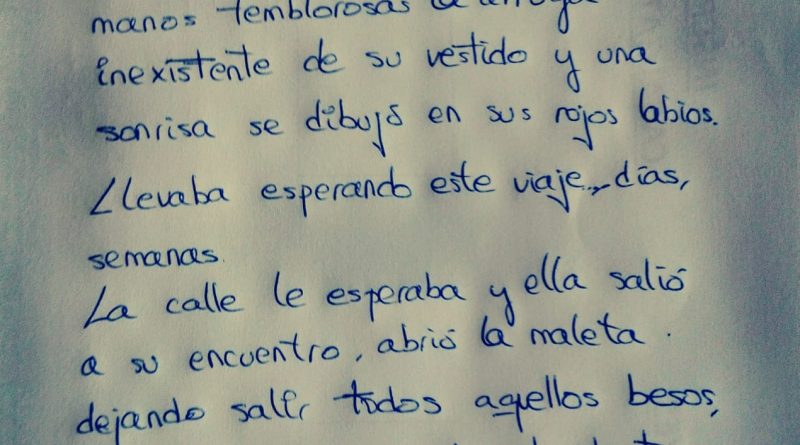 manos temblorosas la arruga
inexistente de su vestido y una
sonrisa se dibujó en sus rojos labios.
Llevaba esperando este viaje... días,
semanas.
La calle le esperaba y ella salió
a su encuentro, abrió la maleta.
dejando salir todos aquellos besos,